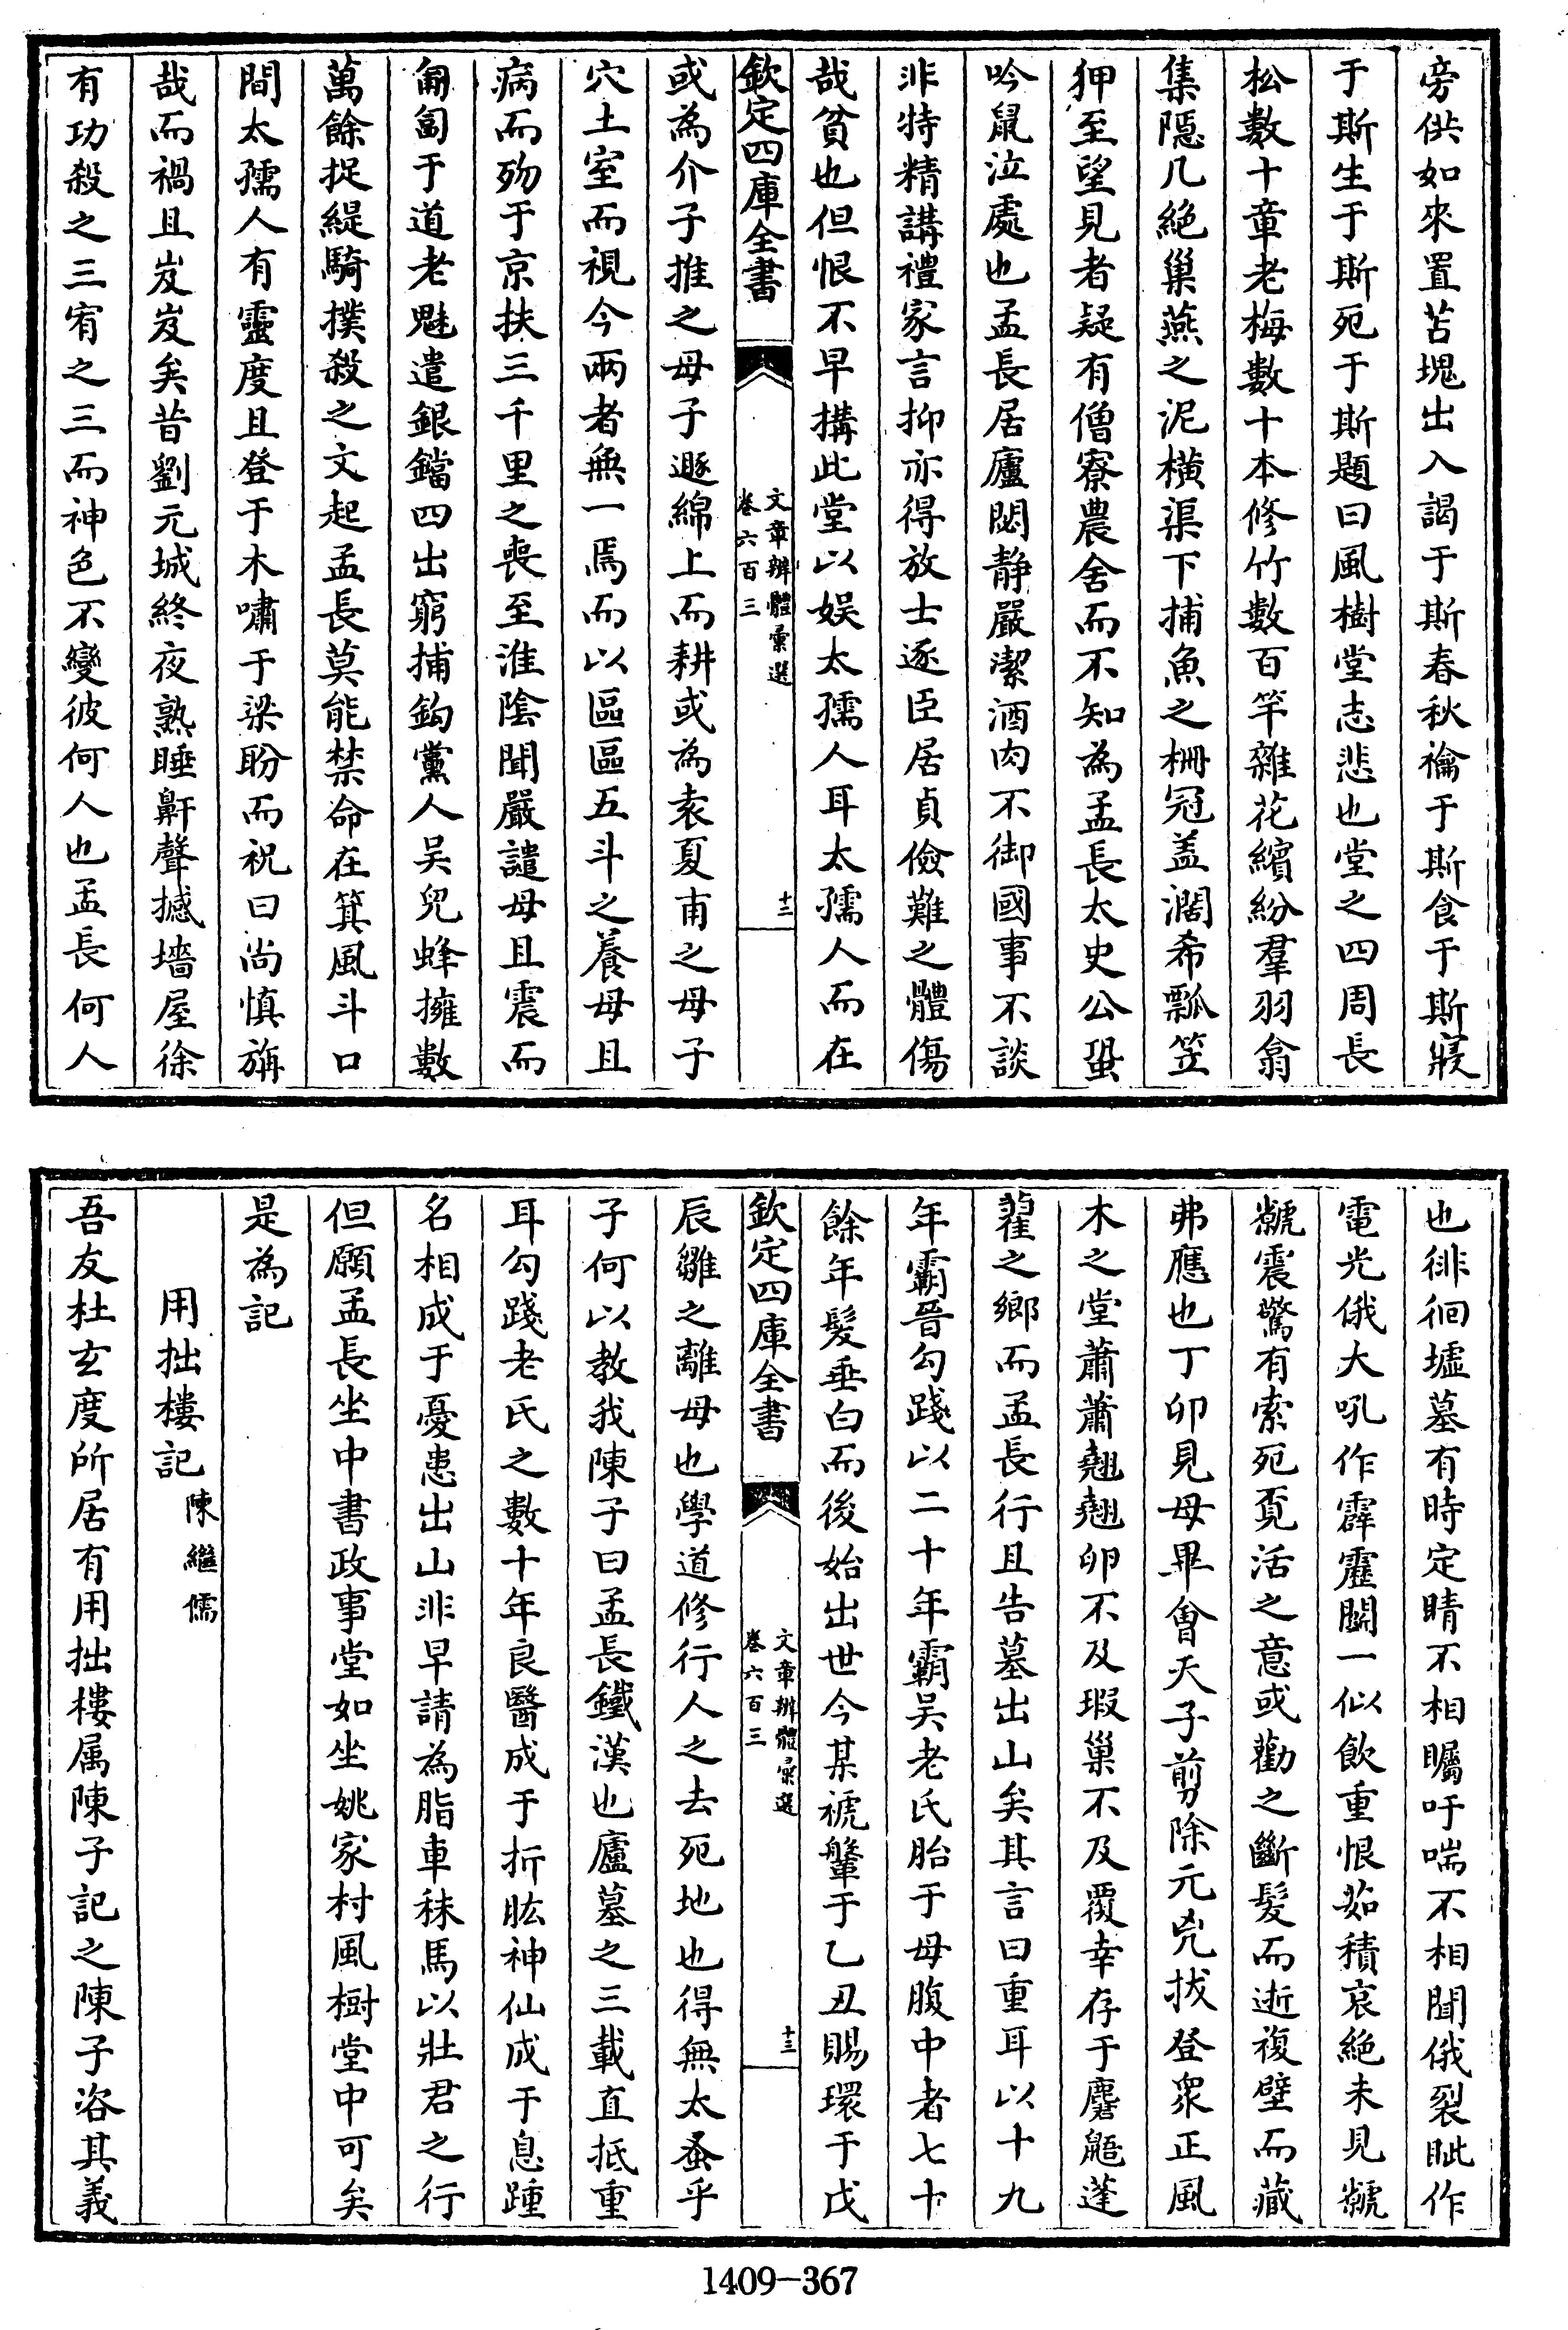 旁供如來置苫塊出入謁于斯春秋禴于斯食于斯寢
于斯生于斯死于斯題曰風樹堂志悲也堂之四周長
松數十章老梅數十本修竹數百竿雜花繽紛羣羽翕
集隱几絶巢燕之泥橫渠下捕魚之柵冠盖濶希瓢笠
狎至望見者疑有僧寮農舍而不知為孟長太史公蛩
吟鼠泣處也孟長居廬閟静嚴潔酒肉不御國事不談
非特精講禮家言抑亦得放士逐臣居貞儉難之體傷
哉貧也但恨不早搆此堂以娱太孺人耳太孺人而在
欽定四庫全書
文章辨體彚選
卷六百三
十二
或為介子推之母子遯綿上而耕或為袁夏甫之母子
穴土室而視今兩者無一焉而以區區五斗之養母且
病而歿于京扶三千里之喪至淮陰聞嚴譴母且震而
匍匐于道老魁遣銀鐺四出窮捕鈎黨人吴兒蜂擁數
萬餘捉緹騎撲殺之文起孟長莫能禁命在箕風斗口
間太孺人有靈度且登于木嘯于梁盼而祝曰尚慎旃
哉而禍且岌岌矣昔劉元城終夜熟睡鼾聲撼墻屋徐
有功殺之三宥之三而神色不變彼何人也孟長何人
也徘徊墟墓有時定睛不相矚吁喘不相聞俄裂眦作
電光俄大吼作霹靂鬬一似飲重恨茹積哀絶未見虩
虩震驚有索死覔活之意或勸之斷髮而逝複壁而藏
弗應也丁卯見母畢會天子剪除元兇拔登衆正風
木之堂蕭蕭翹翹卵不及瑕巢不及覆幸存于麏鼯蓬
藋之鄉而孟長行且告墓出山矣其言曰重耳以十九
年霸晉勾踐以二十年霸吴老氏胎于母腹中者七十
餘年髮垂白而後始出世今某褫鞶于乙丑賜環于戊
欽定四庫全書
文章辨體彚選
卷六百三
十三
辰雛之離母也學道修行人之去死地也得無太蚤乎
子何以教我陳子曰孟長鐵漢也廬墓之三載直抵重
耳勾踐老氏之數十年良醫成于折肱神仙成于息踵
名相成于憂患出山非早請為脂車秣馬以壯君之行
但願孟長坐中書政事堂如坐姚家村風樹堂中可矣
是為記
用拙樓記 陳繼儒
吾友杜玄度所居有用拙樓属陳子記之陳子咨其義
1409-367